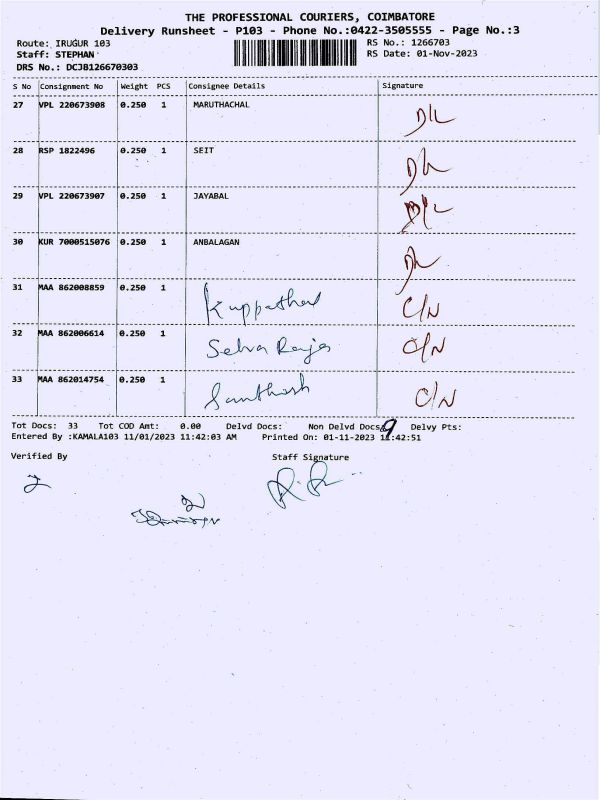 THE PROFESSIONAL COURIERS, COIMBATORE
Delivery Runsheet - P103 - Phone No.:0422-3505555 - Page No.:3
Route: IRUGUR 103 RS No.: 1266703
Staff: STEPHAN RS Date: 01-Nov-2023
DRS No.: DCJB126670303
S No Consignment No Weight PCS Consignee Details Signature
27 VPL 220673908 0.250 1 MARUTHACHAL D/L
28 RSP 1822496 0.250 1 SEIT D/L
29 VPL 220673907 0.250 1 JAYABAL D/L
30 KUR 7000515076 0.250 1 ANBALAGAN D/L
31 MAA 862008859 0.250 1 Kuppathal C/N
32 MAA 862006614 0.250 1 Selva Raja C/N
33 MAA 862014754 0.250 1 Santhosh C/N
Tot Docs: 33 Tot COD Amt: 0.00 Delvd Docs: Non Delvd Docs: 9 Delvy Pts:
Entered By :KAMALA103 11/01/2023 11:42:03 AM Printed On: 01-11-2023 11:42:51
Verified By Staff Signature